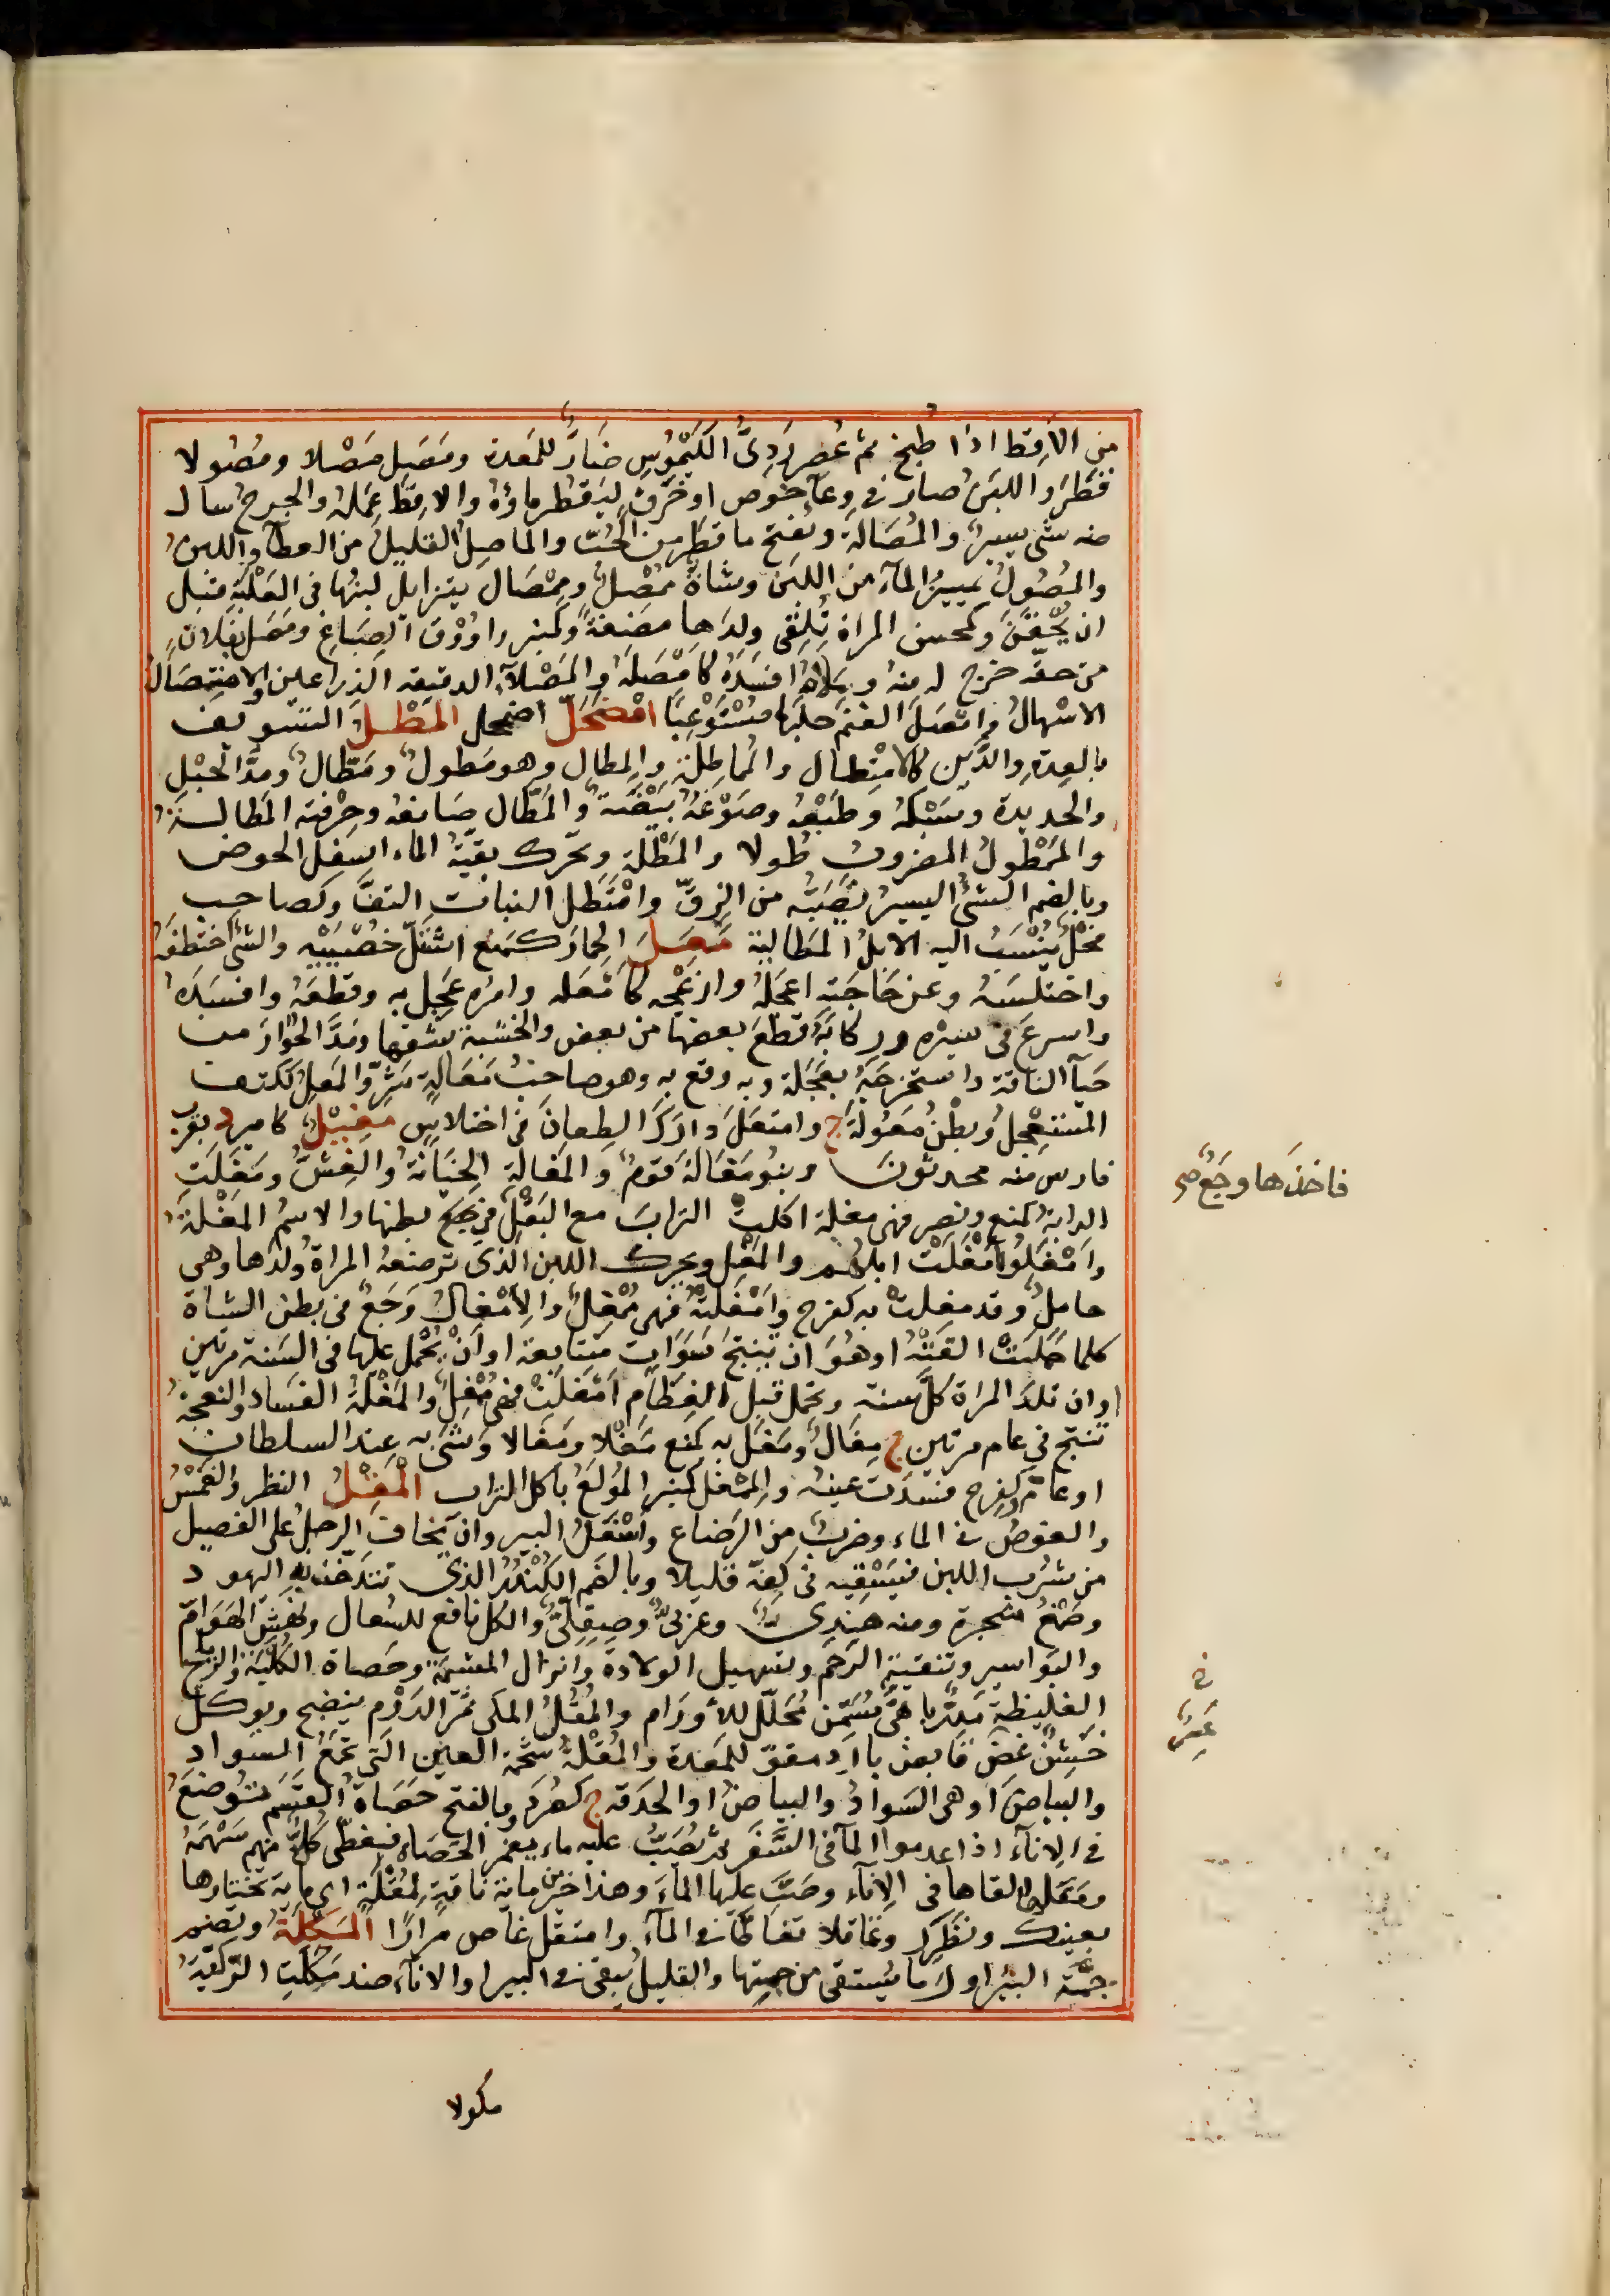 من الأقِط اذا طبخ ثم عُصر رَدِىُّ الكَيْمُوسِ ضَارٌّ للمَعدة ومَصَل مَصْلا ومُصُولا
قَطَر واللبَنُ صار فى وِعآءِ خُوصٍ او خَزَفٍ لِيَقطُر ماؤهُ والاقِطَ عَمَلهُ والجرح سال
منه شئ يسيرٌ والمُصَالة ويُفتح ما قطَر من الحُبّ والماصِلُ القليلُ من العطآءِ واللبنِ
والمُصُولُ تمييزُ المآءِ من اللبَن وشاةٌ مُمْصِلٌ ومِمْصَال يتزايلُ لبنُها فى العُلْبَةِ قبل
ان يُحْقَنَ وكمحسن المراة تُلْقِى ولدَها مضغةً وكمنبر راوُوْق الصِّبَاغِ ومَصَل لفلانٍ
من حقه خرج له منه و مالَهُ افسَدَهُ كامْصَلهُ والمَصْلآءُ الدقيقة الذراعين والامتِصَالُ
الاسْهالُ وامْصَلَ الغنم حلبَها مُسْتَوْعِبًا امْضَحَلّ اضمحل المَطْلُ التسويف
بالعِدةِ والدَّين كالامتطال والمُماطلة والمِطال وهو مَطولٌ ومَطّالٌ ومدُّ الحَبْلِ
والحديدة وسَبْكهُ وطَبْعُه وصَوْغهُ بَيْضَة والمَطّال صَانعهُ وحِرْفته المَطالة
والمَمْطولُ المضروبُ طُولا والمَطْلَة وتحرك بقيّةُ الماء اسفلَ الحوض
وبالضم الشئُ اليسيرُ تَصُبُّه من الزِّقّ وامْتَطَل النباتُ التفَّ وكصاحبٍ
فحْلٌ يُنْسَبُ اليه الابلُ الماطلية مَعَلَ الحمارَ كمنع اسْتَلّ خُصْيَيْه والشئَ اختطفَهُ
واختلسَهُ وعن حَاجَته اعجَلهُ وازعَجه كامْعَله وامره عَجِل به وقطعَهُ وافسَدَهُ
واسرعَ فى سيره ورِكابَهُ قطعَ بعضَها من بعض والخشبة شقها ومَدَّ الحُوارَ من
حَيآءِ الناقة واستخرجَهُ بعَجَلة وبه وقع به وهو صاحبُ مَعَالةٍ شَرٍّ والمَعِلُ ككتف
المستعجِلُ وبطنُ مَعُولةَ ج وامتعَلَ دارَكَ الطِعانَ فى اختلاسٍ مَغْبِيْلُ كاميرد بقرب
فارس منه محدثونَ وبنو مَغَالةَ قومٌ والمَغالة الخيَانةُ والغِشُّ ومَغَلت
الدابة كمنع ونصر فهى مغِلة اكلتْ الترابَ مع البَقْلِ فوجع بطنها والاسمُ المَغْلةُ
وامْغَلوا مَغَلَتْ ابلُهُم والمَغْل ويحرك اللبن الذى تُرضعهُ المراةُ ولدَها وهى
حاملٌ وقد مغِلتْ به كفرح وامْغَلتْهُ فهى مُمْغِلٌ والامْغالُ وَجَعٌ فى بطن الشاة
كلما حَمَلتْ القتْهُ او هُوَ ان تُنتجَ سَنَواتٍ متتابعة او أَنْ يُحْمل عليها فى السَنة مرتين
او ان تلدَ المراة كلَّ سنة وتحمل قبل الفِطَامِ امْغَلتْ فهى مُمْغِلٌ والمَغْلةُ الفَسَاد والنعجةُ
تُنتج فى عام مرتين ج مِغَالٌ ومَغَل به كمنع مَغْلا ومَغَالا وَشَى به عند السلطان
او عامٌّ وكفرح فسدَت عينهُ والمِمْغَل كمنبر المُولَعُ باكل التراب المَقْلُ النظر والغَمْسُ
والغوصُ فى الماء وضربٌ من الرَضاع واسْفَلُ البير وان يَخافَ الرجلُ على الفصيل
من شُرب اللبن فيَسْقِيه فى كفِه قليلا وبالضم الكُنْدُرُ الذى تتدَخّنُ به اليهود
وصَمْغُ شجرة ومنه هِندِىٌّ وعربىٌّ وصِقِلِّىٌّ والكل نافع للسُعال ونهْش الهَوَامّ
والبَواسير وتنقية الرَحِم وتسهيل الولادة وانزال المشيمة وحَصاة الكُلْيَة والرياح
الغليظة مُدِرٌّ باهِىٌّ مُسَمِّن مُحَلّل للأورَام والمُقْلُ المكى ثمَر الدَوْم ينضج ويوكل
خَشِنٌ عَفِصٌ قابض بارد مقوّ للمَعدة والمُقْلةُ شحْمة العين التى تجْمَعُ السَواد
والبياض او هى السَوادُ والبياضُ او الحدَقة ج كصُرَد وبالفتح حَصَاةُ القَسْم تُوضَعُ
فى الانآء اذا عدموا المآ فى السَّفَر ثم يُصَبُّ عليه ماء يغمر الحَصَاة فيعطى كلٌّ منهم سَهْمَهُ
ومَقَلها القاها فى الانآء وصَبَّ عليها الماءَ وهذا خير من ماية ناقةٍ لِمُقْلَة اى ماية تختارها
بعينك ونَظَرِك وتماقلا تغاطّا فى المآء وامتقل غاص مِرارًا المَكُلَة ويضم
جَمّة البئر او اوَّلُ ما يُستقى من جمتها والقليلُ يبقى فى البير او الانآء ضد مَكَلَت الرَّكِيّةُ
مكولا
فاخذها وجَعٌ صح
خ
عَسِر